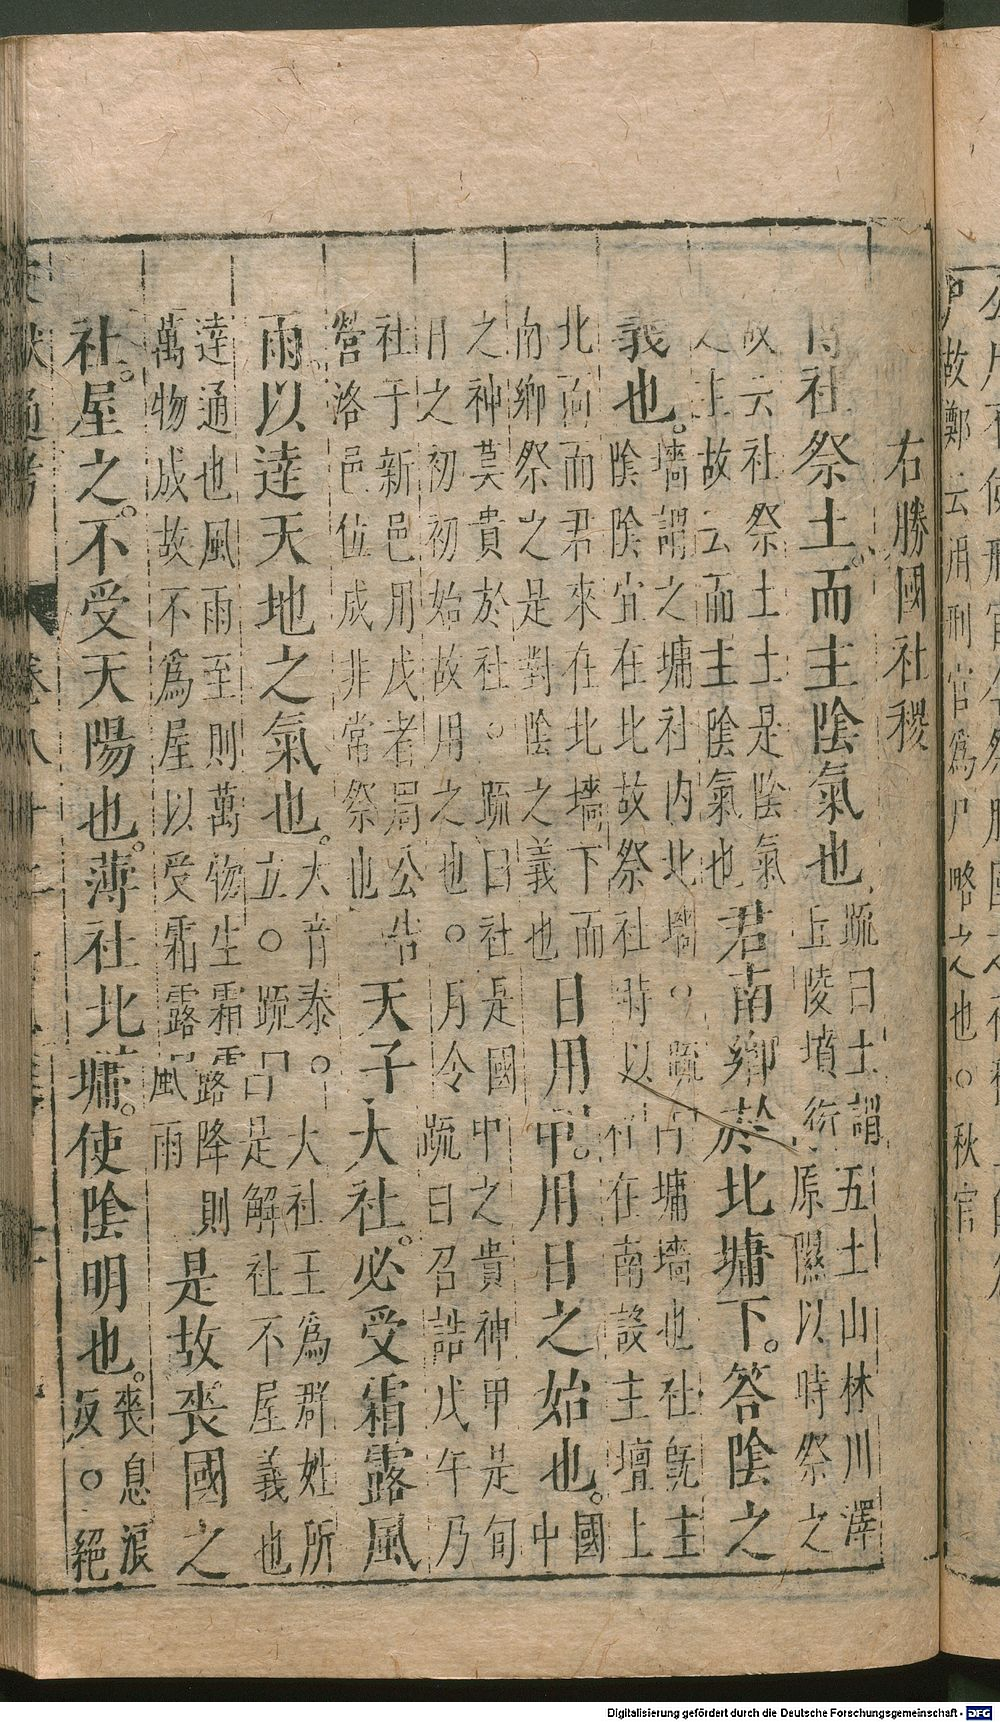 右勝國社稷
社祭土而主陰氣也疏曰土謂五土山林川澤
丘陵墳衍原隰以時祭之
故云社祭土土是陰氣
之主故云而主陰氣也
君南鄉於北墉下答陰之
義也
墻謂之墉社内北墻○疏曰墉墻也社旣主
陰陰宜在北故祭社時以社在南設主壇上
北面而君來在北墻下而
南鄉祭之是對陰之義也
日用甲用日之始也
國
中
之神莫貴於社○疏曰社是國中之貴神甲是旬
日之初初始故用之也○月令疏曰召誥戊午乃
社于新邑用戊者周公告
營洛邑位成非常祭也
天子大社必受霜露風
雨以達天地之氣也
大音泰○大社王為群姓所
立○疏曰是解社不屋義也
達通也風雨至則萬物生霜露降則
萬物成故不為屋以受霜露風雨
是故喪國之
社屋之不受天陽也薄社北墉使陰明也
喪息浪
反○絕